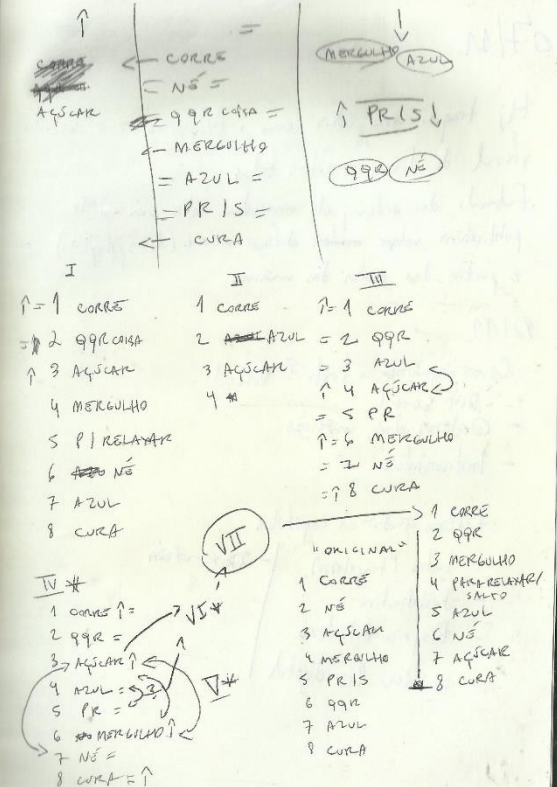 ↑
=
CORRE
AÇÚCAR
← CORRE
= NÉ =
QQR COISA =
← MERGULHO
= AZUL =
= PR/S =
← CURA
↓
MERGULHO AZUL
↑ PR/S ↓
QQR NÉ
I
↑= 1 CORRE
= 2 QQR COISA
↑ 3 AÇÚCAR
4 MERGULHO
5 P/ RELAXAR
6 NÉ
7 AZUL
8 CURA
II
1 CORRE
2 AZUL
3 AÇÚCAR
4
III
↑= 1 CORRE
= 2 QQR
= 3 AZUL
↑ 4 AÇÚCAR
= 5 PR
↑= 6 MERGULHO
= 7 NÉ
=↑ 8 CURA
VII
IV *
1 CORRE ↑=
2 QQR =
3 AÇÚCAR ↑
4 AZUL = 3
5 PR =
6 MERGULHO ↑
7 NÉ =
8 CURA = ↑
VI *
V *
"ORIGINAL"
1 CORRE
2 NÉ
3 AÇÚCAR
4 MERGULHO
5 PR/S
6 QQR
7 AZUL
8 CURA
1 CORRE
2 QQR
3 MERGULHO
4 PARA RELAXAR/
SALTO
5 AZUL
6 NÉ
7 AÇÚCAR
8 CURA